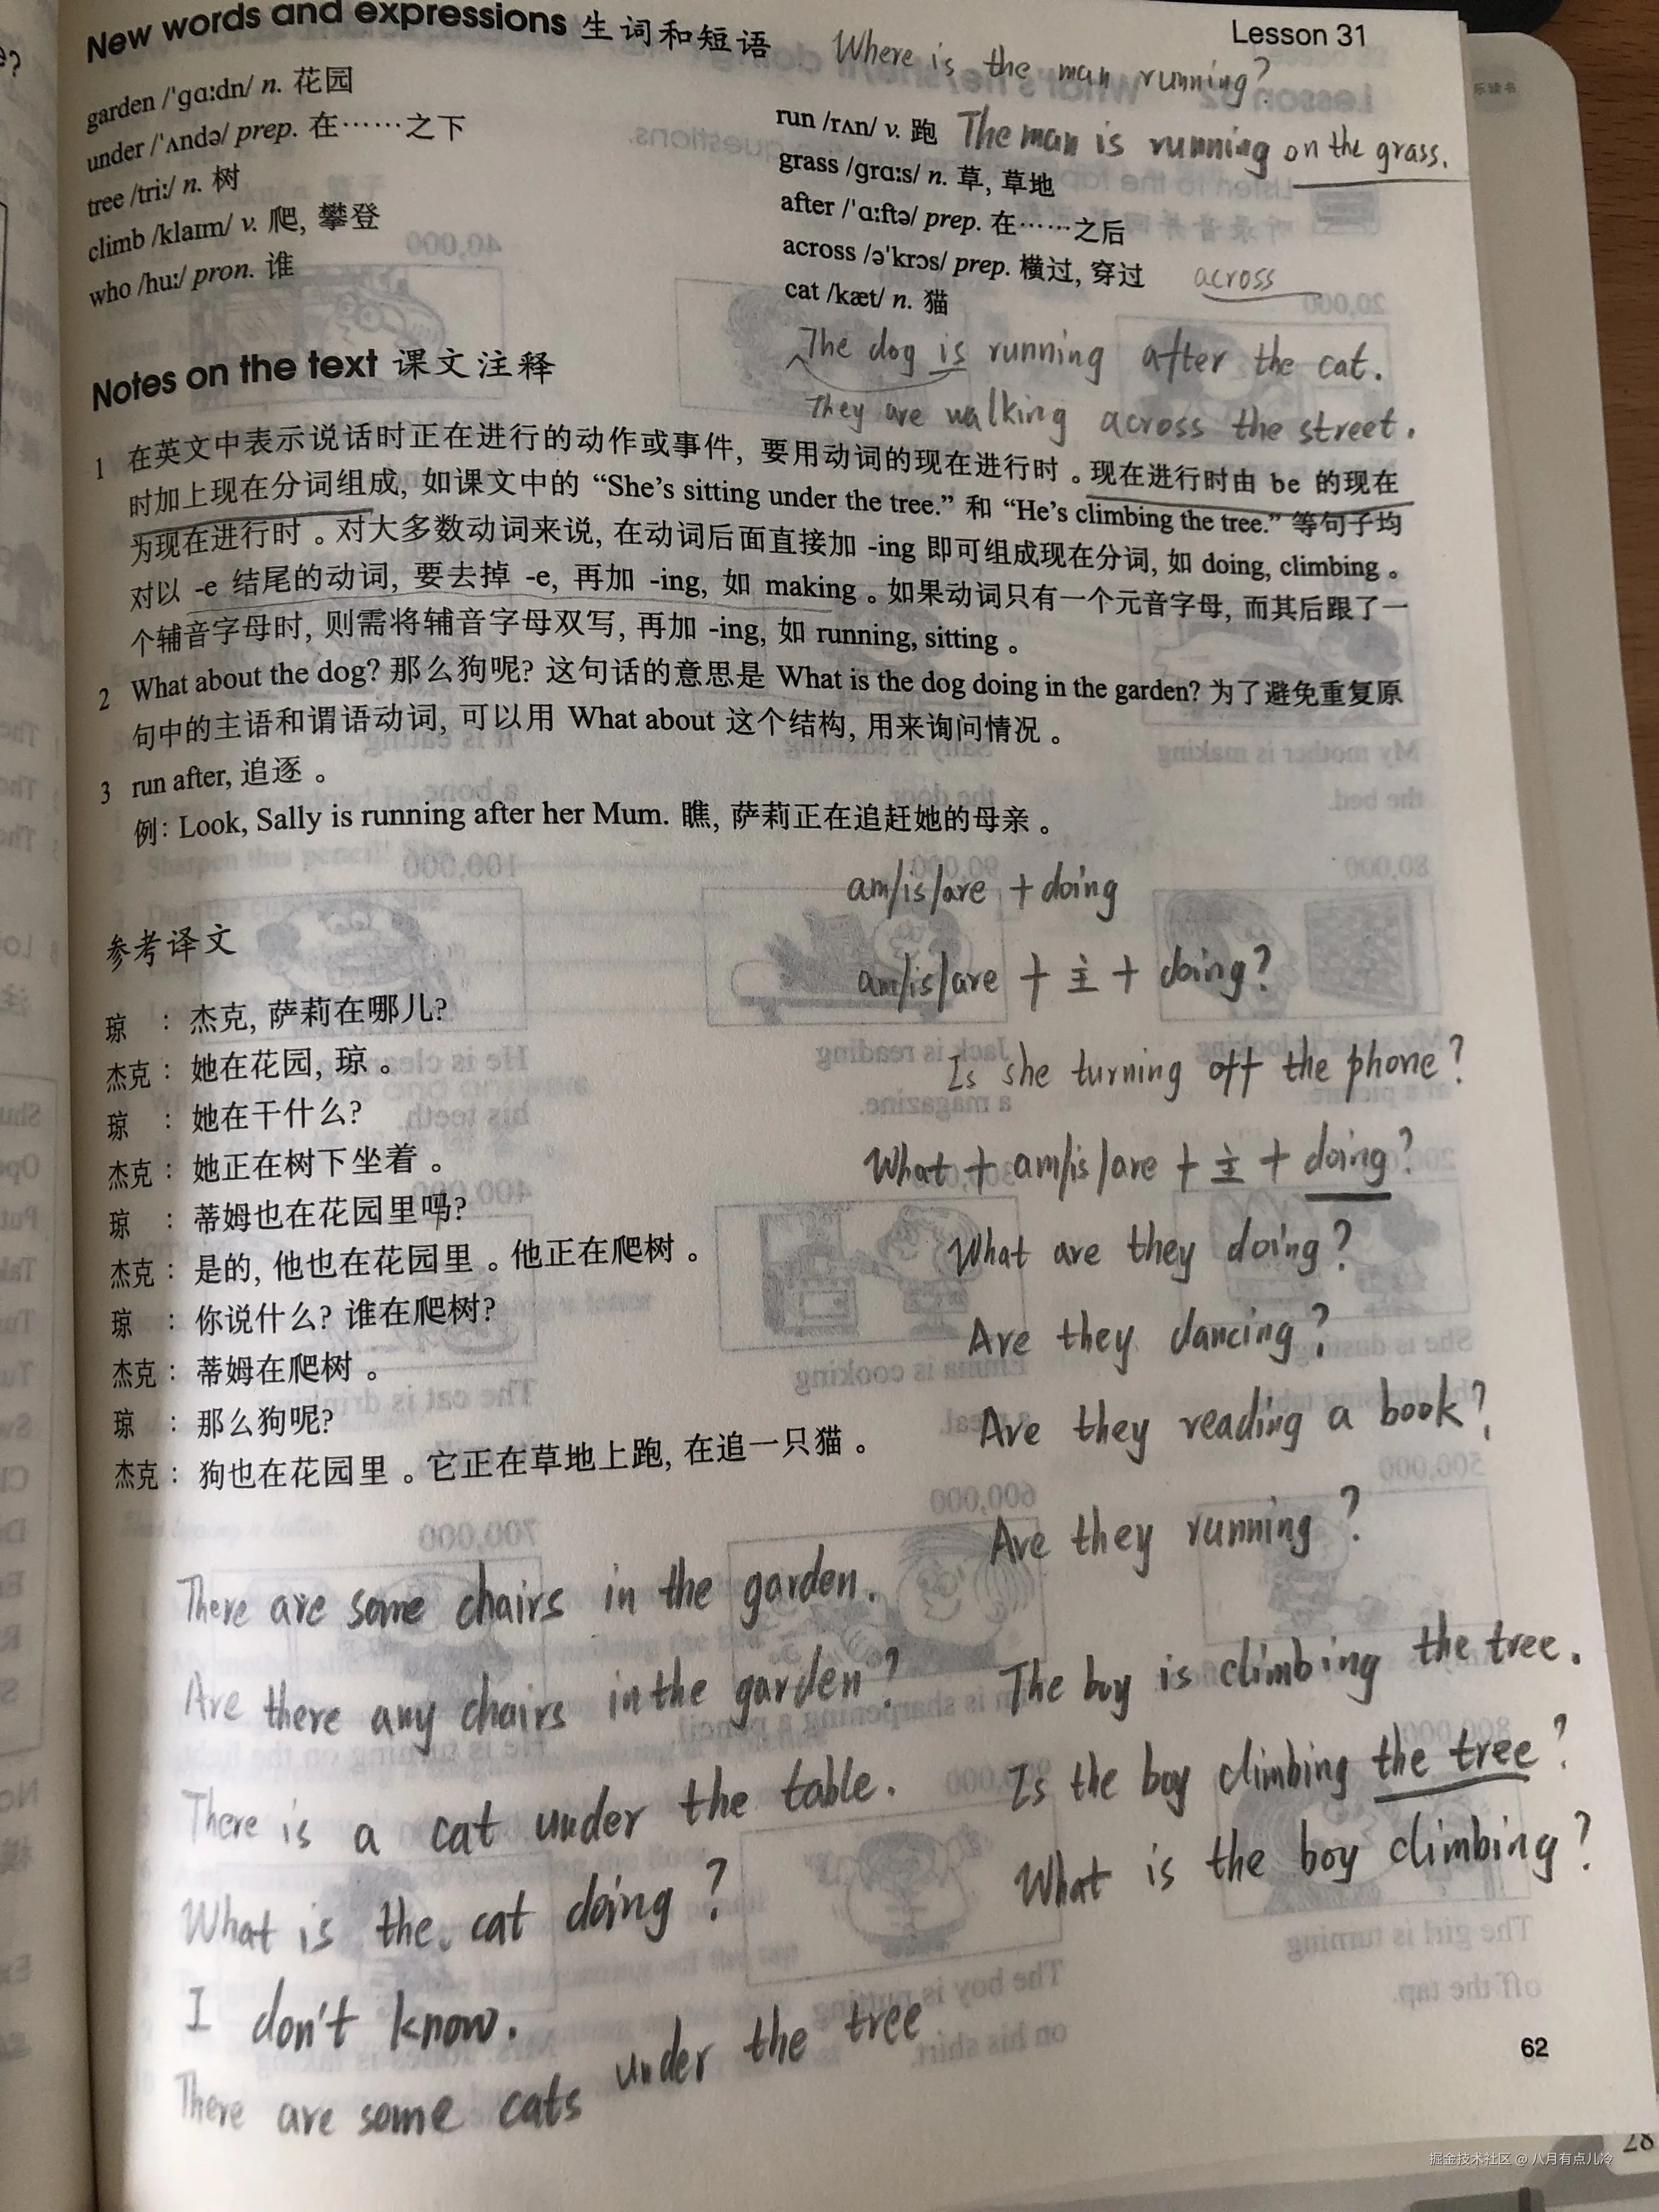 New words and expressions 生词和短语
Lesson 31
Where is the man running?
garden /ˈgɑːdn/ n. 花园
under /ˈʌndə/ prep. 在……之下
tree /triː/ n. 树
climb /klaɪm/ v. 爬, 攀登
who /huː/ pron. 谁
run /rʌn/ v. 跑
The man is running on the grass.
grass /grɑːs/ n. 草, 草地
after /ˈɑːftə/ prep. 在……之后
across /əˈkrɔs/ prep. 横过, 穿过
across
cat /kæt/ n. 猫
The dog is running after the cat.
They are walking across the street.
Notes on the text 课文注释
1 在英文中表示说话时正在进行的动作或事件, 要用动词的现在进行时。现在进行时由 be 的现在
时加上现在分词组成, 如课文中的 “She’s sitting under the tree.” 和 “He’s climbing the tree.” 等句子均
为现在进行时。对大多数动词来说, 在动词后面直接加 -ing 即可组成现在分词, 如 doing, climbing。
对以 -e 结尾的动词, 要去掉 -e, 再加 -ing, 如 making。如果动词只有一个元音字母, 而其后跟了一
个辅音字母时, 则需将辅音字母双写, 再加 -ing, 如 running, sitting。
2 What about the dog? 那么狗呢? 这句话的意思是 What is the dog doing in the garden? 为了避免重复原
句中的主语和谓语动词, 可以用 What about 这个结构, 用来询问情况。
3 run after, 追逐。
例: Look, Sally is running after her Mum. 瞧, 萨莉正在追赶她的母亲。
参考译文
琼 : 杰克, 萨莉在哪儿?
杰克 : 她在花园, 琼。
琼 : 她在干什么?
杰克 : 她正在树下坐着。
琼 : 蒂姆也在花园里吗?
杰克 : 是的, 他也在花园里。他正在爬树。
琼 : 你说什么? 谁在爬树?
杰克 : 蒂姆在爬树。
琼 : 那么狗呢?
杰克 : 狗也在花园里。它正在草地上跑, 在追一只猫。
am/is/are + doing
am/is/are + 主 + doing?
Is she turning off the phone?
What + am/is/are + 主 + doing?
What are they doing?
Are they dancing?
Are they reading a book?
Are they running?
There are some chairs in the garden.
Are there any chairs in the garden?
There is a cat under the table.
What is the cat doing?
I don't know.
There are some cats under the tree
The boy is climbing the tree.
Is the boy climbing the tree?
What is the boy climbing?
62
28
掘金技术社区 @ 八月有点儿冷